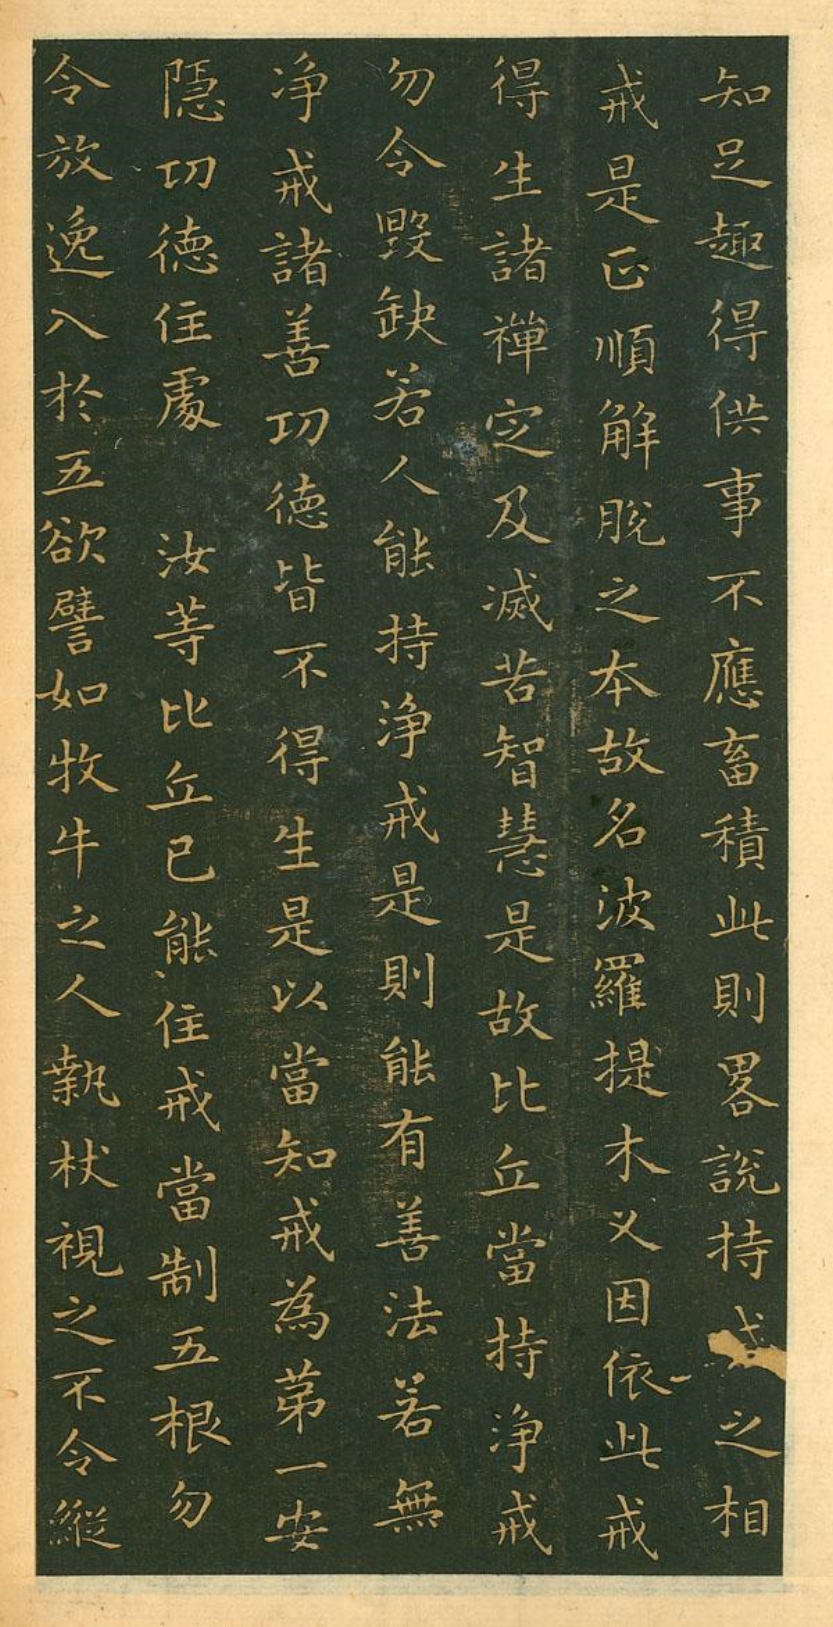 知足趣得供事不應畜積此則畧說持戒之相
戒是正順解脫之本故名波羅提木义因依此戒
得生諸禪定及滅苦智慧是故比丘當持淨戒
勿令毀缺若人能持淨戒是則能有善法若無
淨戒諸善功德皆不得生是以當知戒為苐一安
隱功德住處　汝等比丘已能住戒當制五根勿
令放逸入於五欲譬如牧牛之人執杖視之不令縱